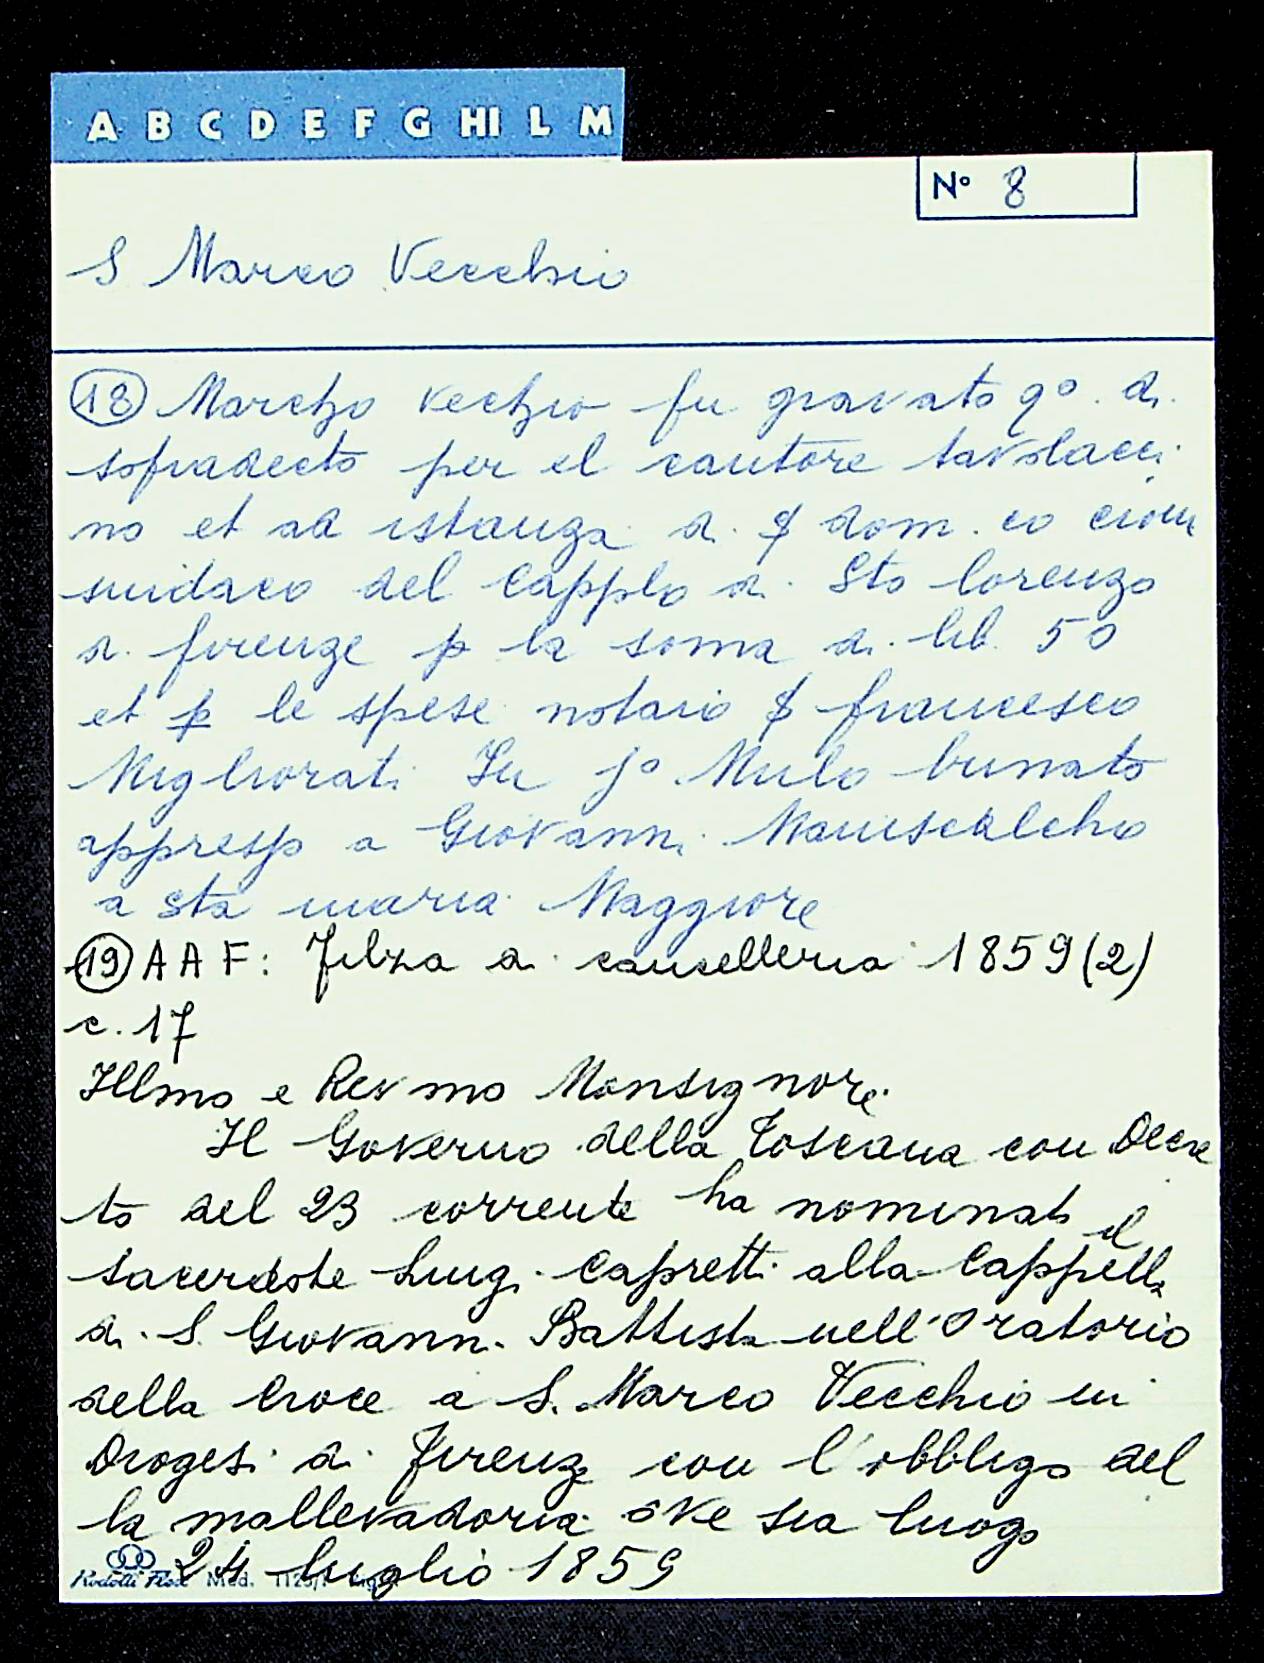 A B C D E F G HI L M
N° 8
S Marco Vecchio
18 Marcho vechio fu gravato q° di
sopradecto per el cautore tavolacci
no et ad istanza di § dom. co cioni
sindaco del Capplo di Sto lorenzo
di firenze p la soma di lib. 50
et p le spese notaio § francesco
Migliorati In j° Mulo brunato
appresso a Giovanni Maniscalcho
a sta maria Maggiore
19 A A F: Filza di cancelleria 1859 (2)
c. 17
Illmo e Revmo Monsignore
Il Governo della Toscana con Decre
to del 23 corrente ha nominato il
sacerdote Luigi Capretti alla Cappella
di S. Giovanni Battista nell'Oratorio
della Croce a S. Marco Vecchio in
Diogesi di Firenze con l'obbligo del
la mallevadoria ove sia luogo
24 luglio 1859
Mod.